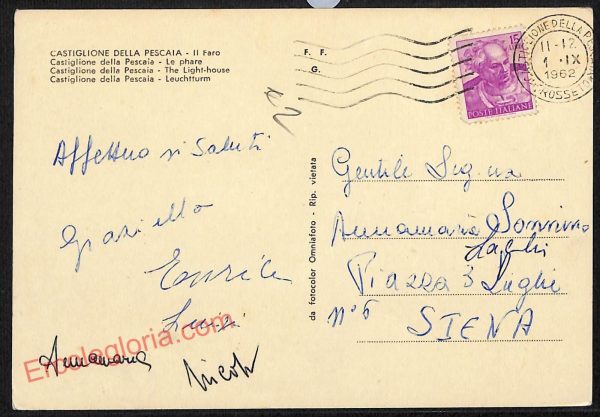 CASTIGLIONE DELLA PESCAIA - Il Faro
Castiglione della Pescaia - Le phare
Castiglione della Pescaia - The Light-house
Castiglione della Pescaia - Leuchtturm
F. F.
G.
15
POSTE ITALIANE
CASTIGLIONE DELLA
11-12
1 · IX
1962
GROSSETO
Affettuosi Saluti
Graziella
Enrica
Luisi
Annamaria
Nicola
da fotocolor Omniafoto - Rip. vietata
Gentile Sig.na
Annamaria Sonnino
Piazza
N° 6
SIENA
Ercolegloria.com